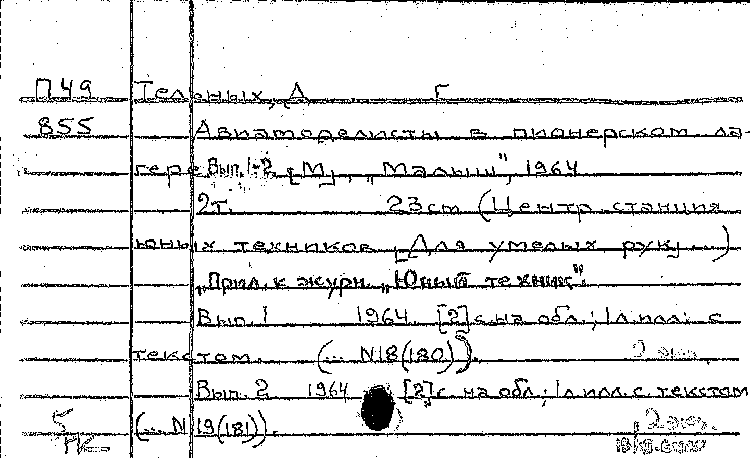 П49 Тельных, А Г
855 Авиамоделисты в пионерском ла-
гере Вып. 1-2. [М], „Малыш", 1964
2т. 23 см (Центр. станция
юных техников. [Для умелых рук] ...)
„Прил. к журн. „Юный техник".
Вып. 1 1964. [2] с. на обл.; 1 л. илл. с
текстом. (... N 18 (180)). 2 экз.
Вып. 2. 1964 [2] с. на обл.; 1 л. илл. с текстом
5 (... N 19 (181)). 2 экз.